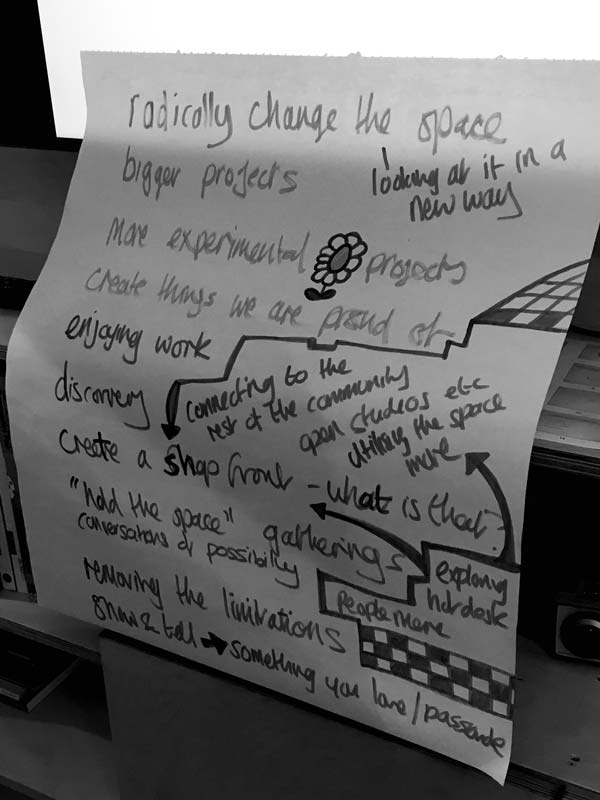 radically change the space
looking at it in a
new way
bigger projects
More experimental projects
create things we are proud of
enjoying work
discovery
connecting to the
rest of the community
open studios etc
utilising the space
more
create a shop front - what is that?
"hold the space" gatherings
conversations of possibility
exploring
hotdesk
People more
removing the limitations
show & tell → something you love/